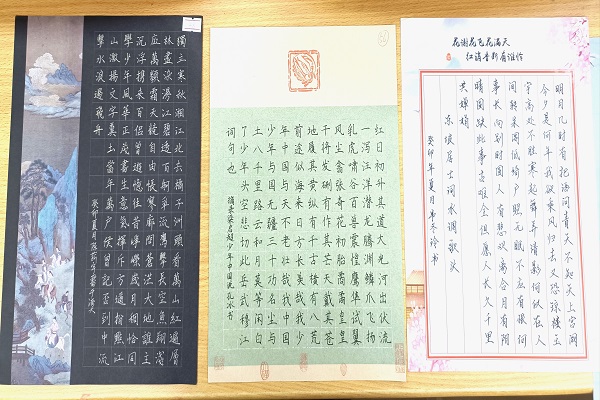 獨立寒秋湘江北去橘子洲頭看萬山紅遍層
林盡染漫江碧透百舸爭流鷹擊長空魚翔淺
底萬類霜天競自由悵寥廓問蒼茫大地誰主
沉浮攜來百侶曾遊憶往昔崢嶸歲月稠恰同
學少年風華正茂書生意氣揮斥方遒指點江
山激揚文字糞土當年萬戶侯曾記否到中流
擊水浪遏飛舟
癸卯夏月
红日初升其道大光河出伏流
一泻汪洋潜龙腾渊鳞爪飞扬
乳虎啸谷百兽震惶鹰隼试翼
风尘翕张奇花初胎矞矞皇皇
干将发硎有作其芒天戴其苍
地履其黄纵有千古横有八荒
前途似海来日方长美哉我少
年中国与天不老壮哉我中国
少年与国无疆三十功名尘与
土八千里路云和月莫等闲白
了少年头空悲切岳武穆江
词句也
摘录梁启超少年中国说孔冰书
花谢花飞花满天
红消香断有谁怜
明月几时有把酒问青天不知天上宫阙
今夕是何年我欲乘风归去又恐琼楼玉
宇高处不胜寒起舞弄清影何似在人
间转朱阁低绮户照无眠不应有恨何
事长向别时圆人有悲欢离合月有阴
晴圆缺此事古难全但愿人长久千里
共婵娟
东坡居士词水调歌头
癸卯年夏月韦冬玲书